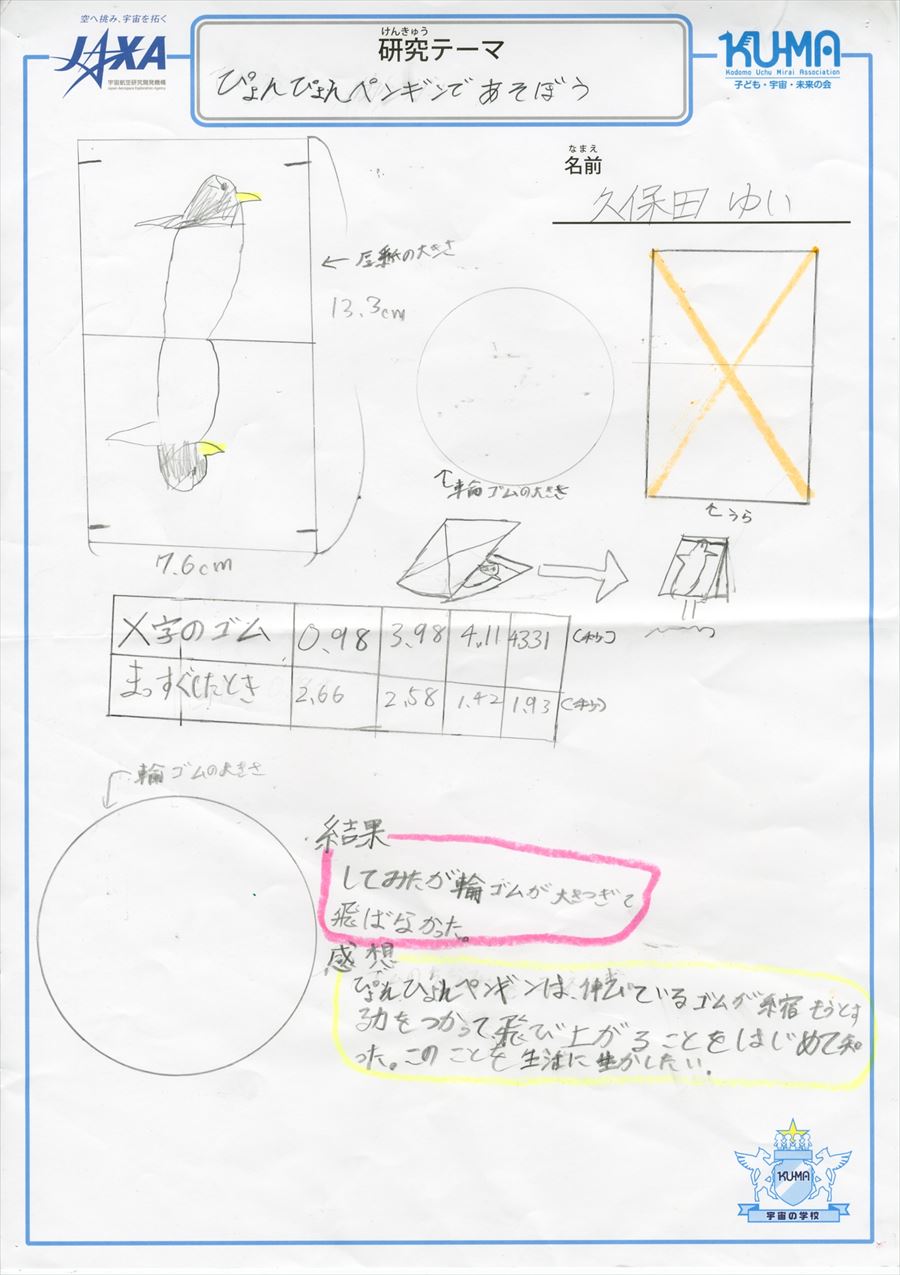 空へ挑み、宇宙を拓く
JAXA
宇宙航空研究開発機構
Japan Aerospace Exploration Agency
けんきゅう
研究テーマ
ぴょんぴょんペンギンであそぼう
KU-MA
Kodomo Uchu Mirai Association
子ども・宇宙・未来の会
なまえ
名前
久保田 ゆい
←厚紙の大きさ
13.3cm
7.6cm
輪ゴムの大きさ
うら
X字のゴム 0.98 3.98 4.11 4331
まっすぐしたとき 2.66 2.58 1.42 1.93
輪ゴムの大きさ
結果
してみたが輪ゴムが大きつぎて
飛ばなかった。
感想
ぴょんぴょんペンギンは、伸びているゴムが縮もうとす
る力をつかって飛び上がることをはじめて知
った。このことを生活に生かしたい。
KU-MA
宇宙の学校